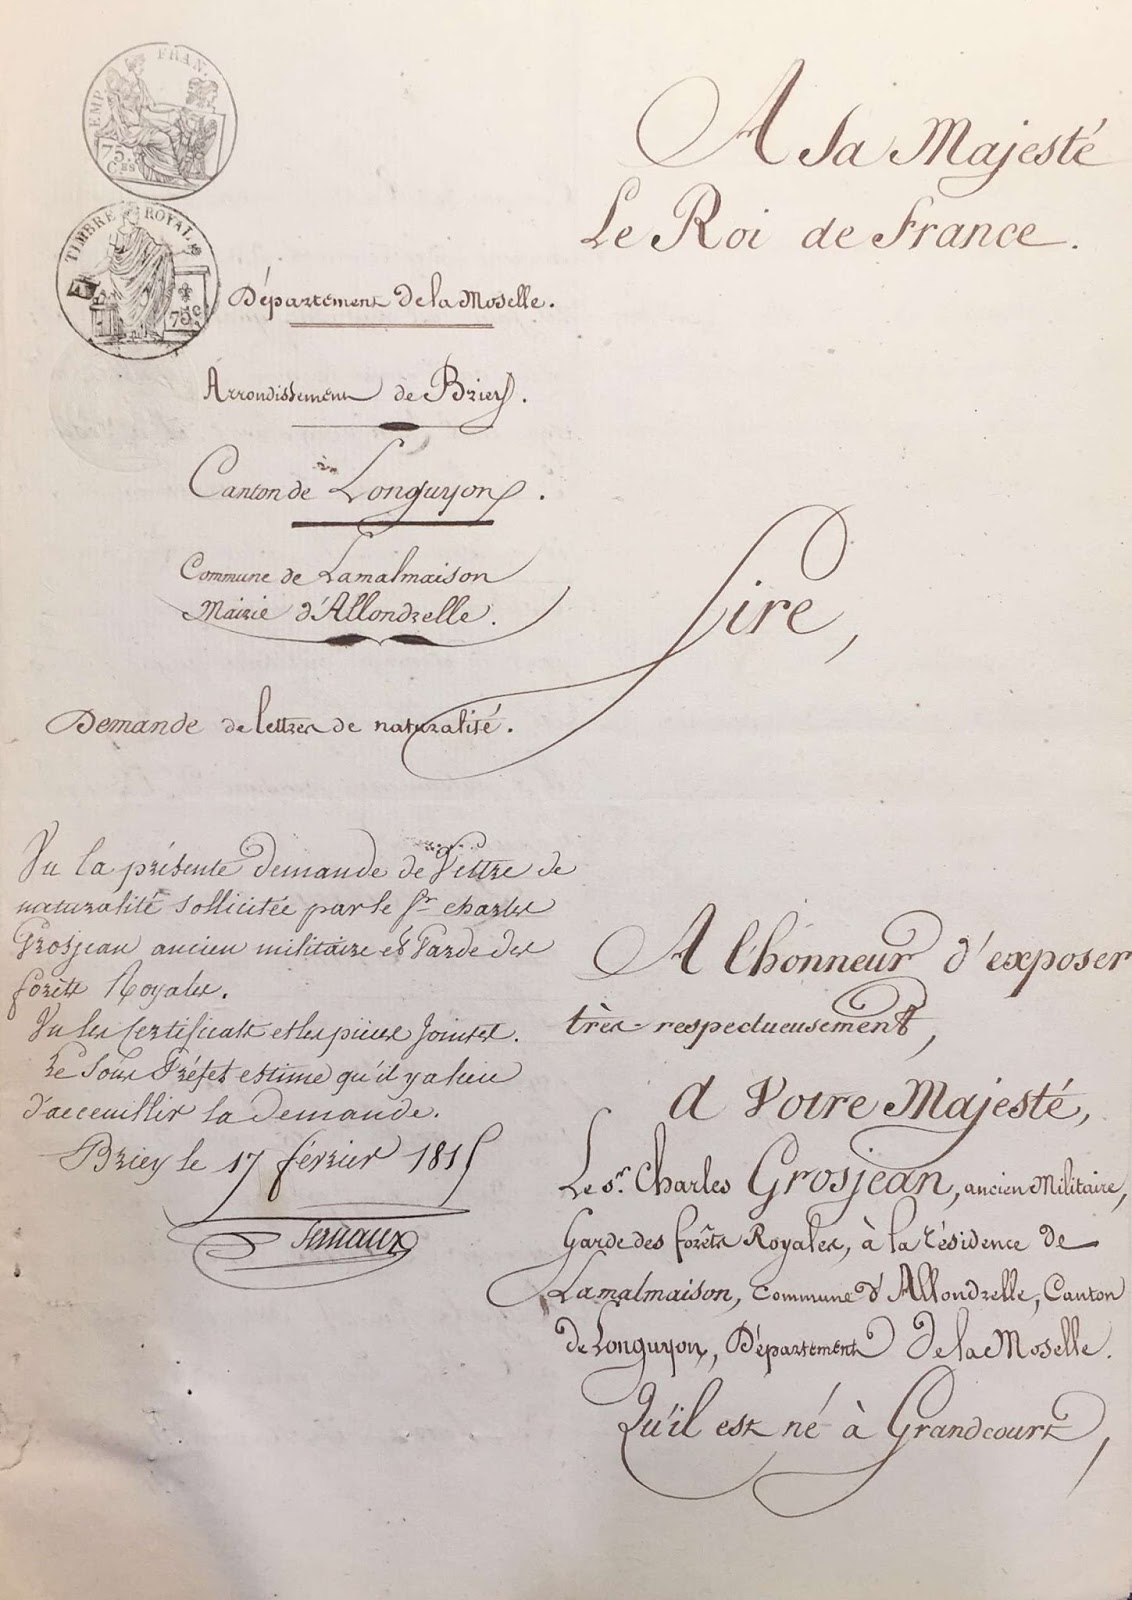 EMP. FRAN.
75
Ces
TIMBRE ROYAL
75 c
A sa Majesté
Le Roi de France.
Département de la Moselle.
Arrondissement de Briey.
Canton de Longuyon.
Commune de Lamalmaison
Mairie d'Allondrelle.
Sire,
Demande de lettres de naturalité.
Vu la présente demande de Lettre de
naturalité sollicitée par le Sr. charles
Grosjean ancien militaire et Garde des
forêts Royales.
Vu les Certificats et les pièces Jointes.
Le Sous Préfet estime qu'il y a lieu
d'acceuillir la demande.
Briey le 17 février 1815
A l'honneur d'exposer
très-respectueusement,
a Votre Majesté,
Le Sr. Charles Grosjean, ancien Militaire,
Garde des forêts Royales, à la résidence de
Lamalmaison, Commune d'Allondrelle, Canton
de Longuyon, Département de la Moselle.
Qu'il est né à Grandcourt,